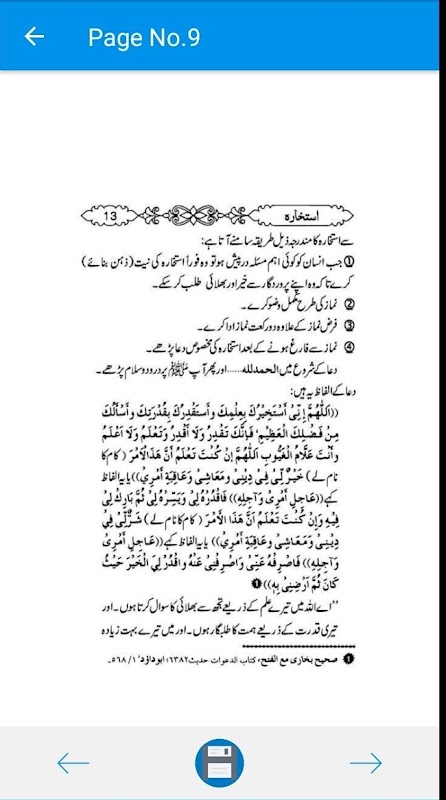 Page No.9
استخارہ 13
سے استخارہ کا مندرجہ ذیل طریقہ سامنے آتا ہے:
① جب انسان کو کوئی اہم مسئلہ درپیش ہو تو وہ فوراً استخارہ کی نیت (ذہن بنائے)
کرے تاکہ وہ اپنے پروردگار سے خیر اور بھلائی طلب کر سکے۔
② نماز کی طرح مکمل وضو کرے۔
③ فرض نماز کے علاوہ دو رکعت نماز ادا کرے۔
④ نماز سے فارغ ہونے کے بعد استخارہ کی مخصوص دعا پڑھے۔
دعا کے شروع میں الحمدللہ......اور پھر آپ ﷺ پر درود و سلام پڑھے۔
دعا کے الفاظ یہ ہیں:
((اَللّٰهُمَّ اِنِّیْ أَسْتَخِيْرُكَ بِعِلْمِكَ وَأَسْتَقْدِرُكَ بِقُدْرَتِكَ وَأَسْأَلُكَ
مِنْ فَضْلِكَ الْعَظِيْمِ' فَإِنَّكَ تَقْدِرُ وَلَا أَقْدِرُ وَتَعْلَمُ وَلَا اَعْلَمُ
وَأَنْتَ عَلَّامُ الْغُيُوْبِ اَللّٰهُمَّ اِنْ كُنْتَ تَعْلَمُ أَنَّ هٰذَا الْأَمْرَ (کام کا
نام لے) خَيْرٌ لِّیْ فِیْ دِيْنِیْ وَمَعَاشِیْ وَعَاقِبَةِ أَمْرِیْ)) یا یہ الفاظ
کہے ((عَاجِلِ أَمْرِیْ وَآجِلِهٖ)) فَاقْدُرْهُ لِیْ وَيَسِّرْهُ لِیْ ثُمَّ بَارِكْ لِیْ
فِيْهِ وَإِنْ كُنْتَ تَعْلَمُ أَنَّ هٰذَا الْأَمْرَ (کام کا نام لے) شَرٌّ لِّیْ فِیْ
دِيْنِیْ وَمَعَاشِیْ وَعَاقِبَةِ أَمْرِیْ)) یا یہ الفاظ کہے ((عَاجِلِ أَمْرِیْ
وَآجِلِهٖ)) فَاصْرِفْهُ عَنِّیْ وَاصْرِفْنِیْ عَنْهُ وَاقْدُرْ لِیَ الْخَيْرَ حَيْثُ
كَانَ ثُمَّ أَرْضِنِیْ بِهٖ)) ❶
''اے اللہ میں تیرے علم کے ذریعے تجھ سے بھلائی کا سوال کرتا ہوں۔ اور
تیری قدرت کے ذریعے ہمت کا طلبگار ہوں۔ اور میں تیرے بہت زیادہ
❶ صحیح بخاری مع الفتح، کتاب الدعوات حدیث ۶۳۸۲؛ ابوداؤد ۱/ ۵۶۸۔